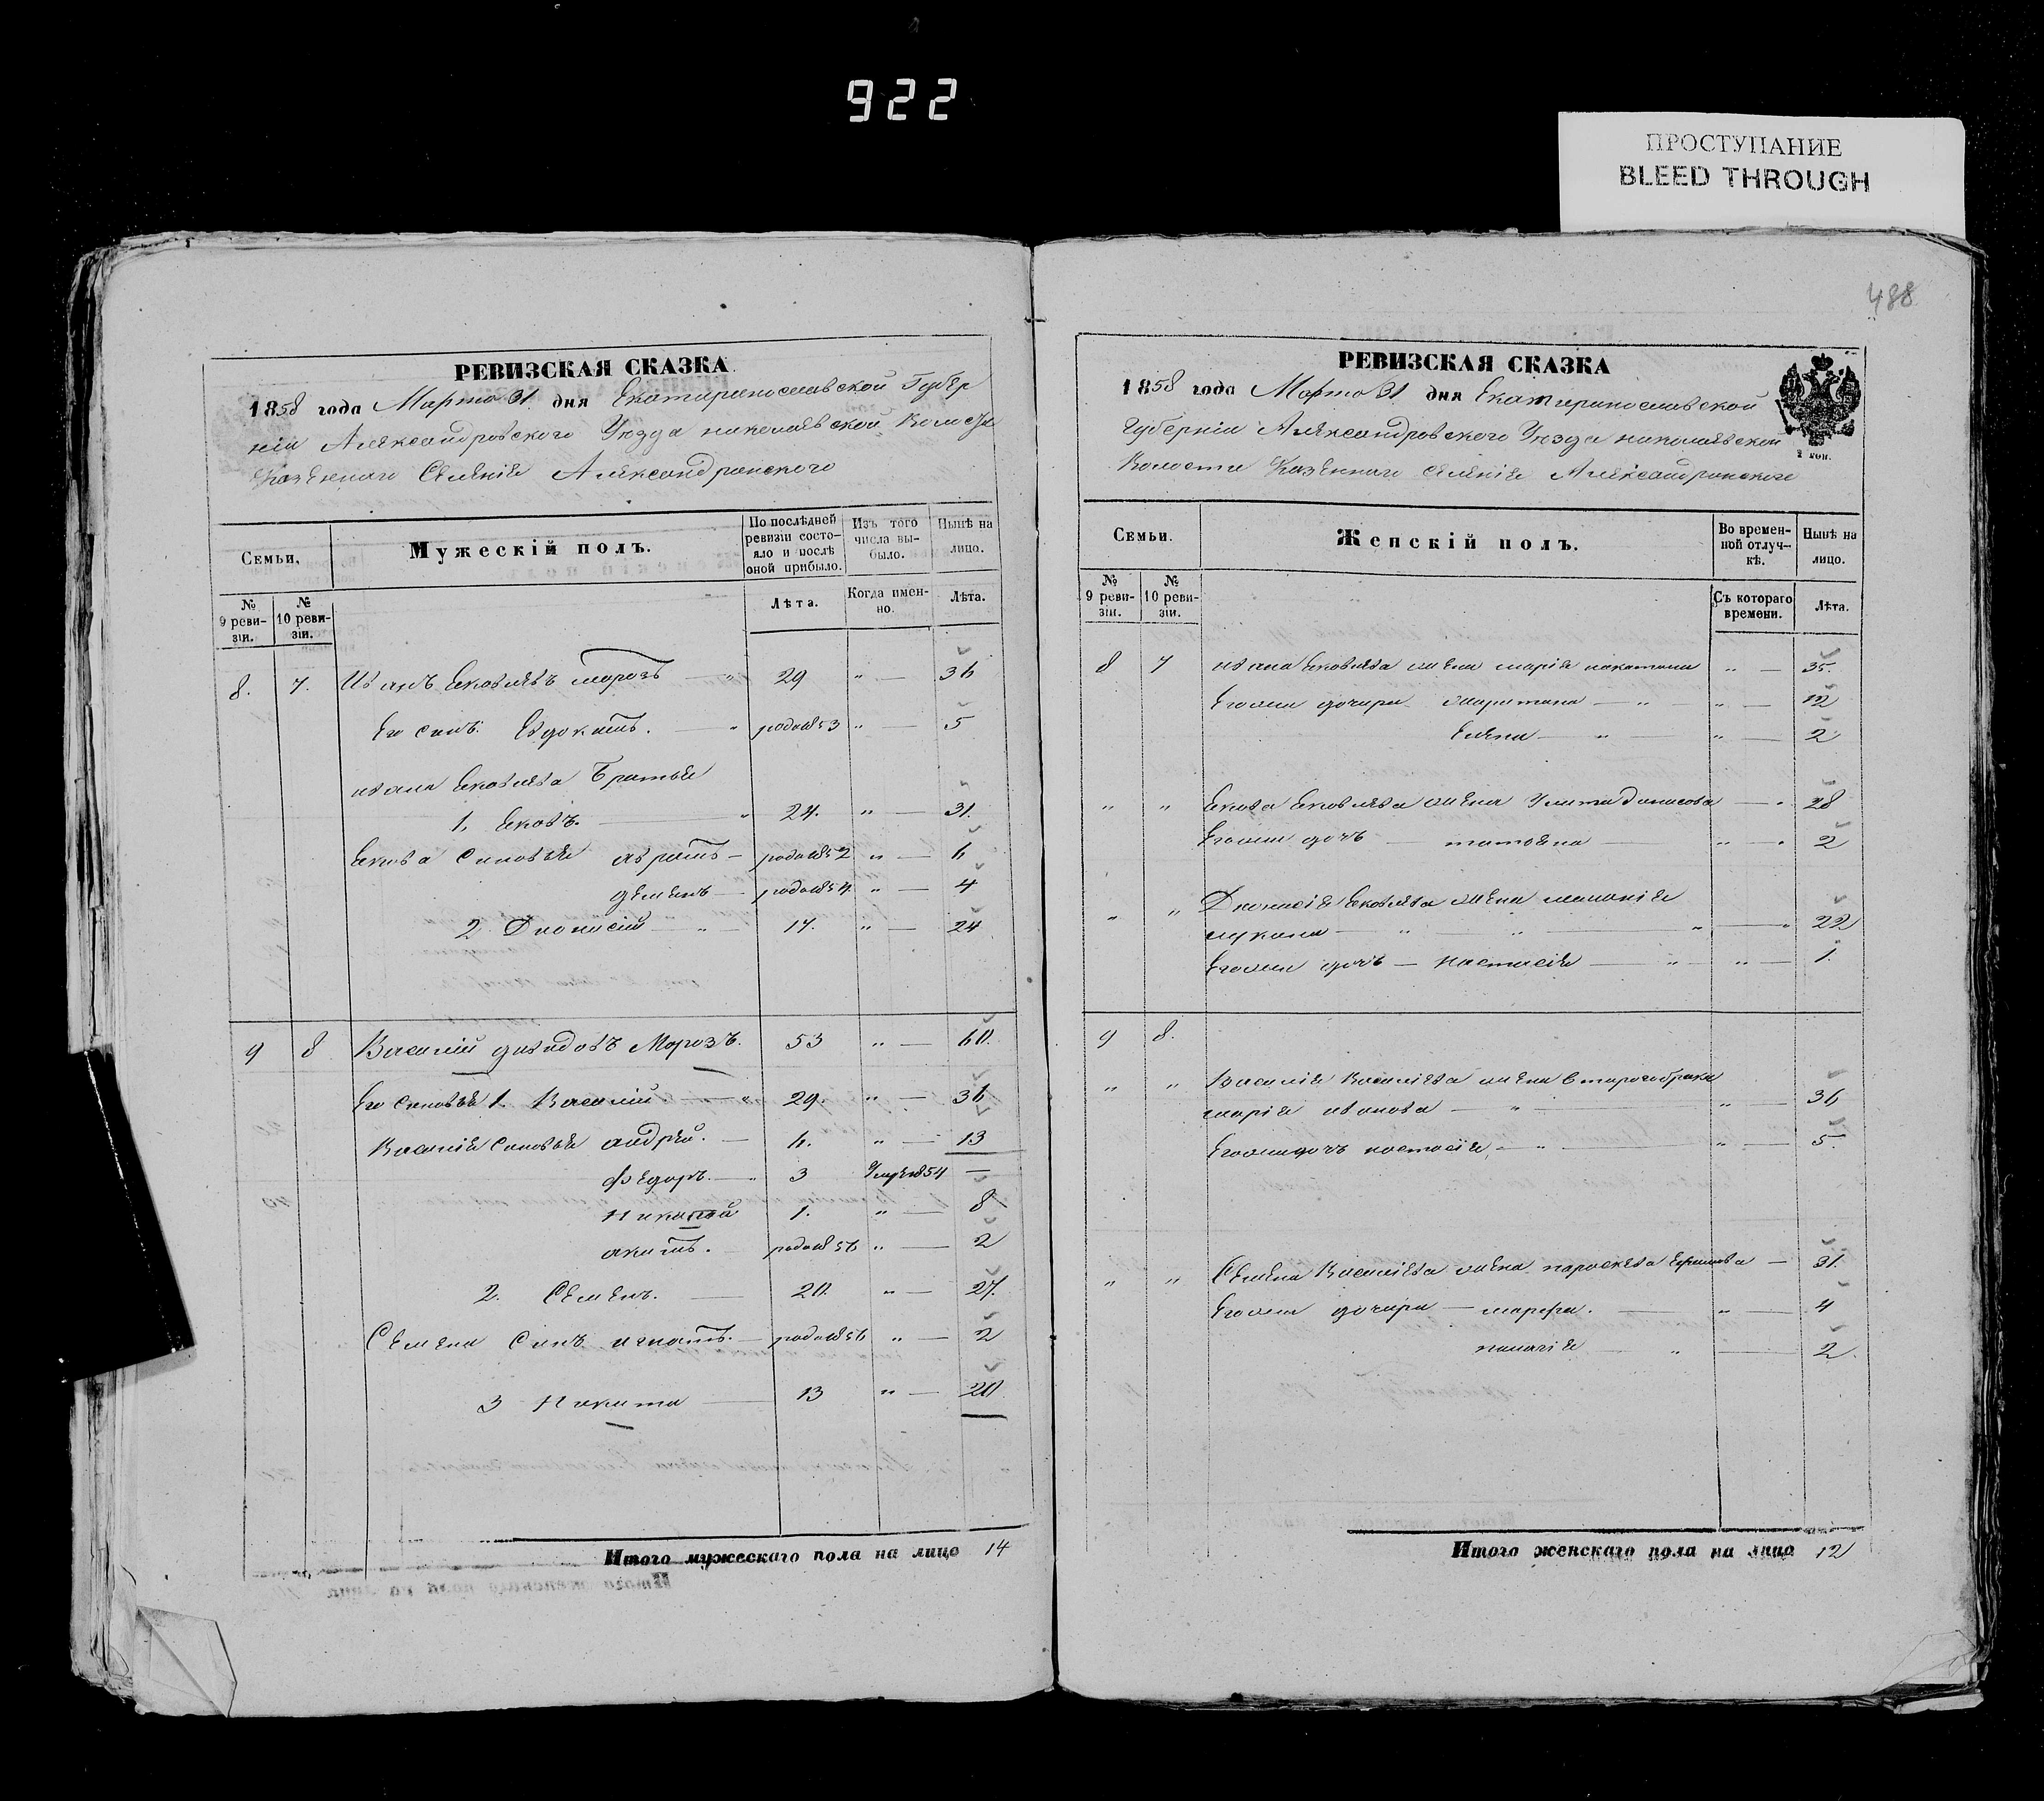 922
ПРОСТУПАНИЕ
BLEED THROUGH
488
РЕВИЗСКАЯ СКАЗКА
1858 года Марта 31 дня Екатеринославской Губер
ніи Александровского Уезда николаевской Волости
Казенного Селеніе Александровского
Семьи,
Мужескій полъ.
По послѣдней ревизіи состояло и послѣ оной прибыло.
Изъ того числа выбыло.
Нынѣ на лицо.
№ 9 ревизіи.
№ 10 ревизіи.
Лѣта.
Когда именно.
Лѣта.
8. 7. Иванъ Яковлевъ морозъ " 29 " — 36
Его синъ: Евдокимъ. — " родо 1853 " — 5
ивана Яковлева Братья
1. Яковъ. — " 24. " — 31.
Якова Синовья аврамъ — родо 1852 " — 6
демянъ — родо 1854 " — 4
2 Дионисій — " — 17. " — 24
9 8 Василий давидовъ Морозъ. 53 " — 60.
Его Синовья 1. Василий — " 29. " — 36
Василія Синовья андрей. — 6. " — 13
Федоръ. — " 3 Умре 1854 —
1. " — 8
акимъ. — родо 1856 " — 2
2. Семенъ. — 20. " — 27.
Семена Синъ игнатъ. — родо 1856 " — 2
3 Никита — 13 " — 20
Итого мужескаго пола на лицо 14
РЕВИЗСКАЯ СКАЗКА
1858 года Марта 31 дня Екатеринославской
Губерніи Александровского Уезда николаевской
Волости Казенного Селеніе Александровского
2 коп.
Семьи.
Женскій полъ.
Во временной отлучкѣ.
Нынѣ на лицо.
№ 9 ревизіи.
№ 10 ревизіи.
Съ котораго времени.
Лѣта.
8 7 ивана Яковлева жена марія " — 35.
Егоже дочери — " — " — 12
Елена — " — " — 2
" " Якова Яковлева жена Улита Данисова — " 28
Егоже дочъ — татьяна — " — " 2
" " Дионисія Яковлева жена меланія
— " — " — " — " 22
Егоже дочъ — настасія — " — " — 1.
9 8.
" " Василія Василіева жена втарого брака
марія иванова — " — " — 36
Егоже дочъ настасія, — " — " — 5.
" " Семена Василіева жена параскева — 31.
Егоже дочери — марфа. — " — 4
пелагія — " — 2.
Итого женскаго пола на лицо 12